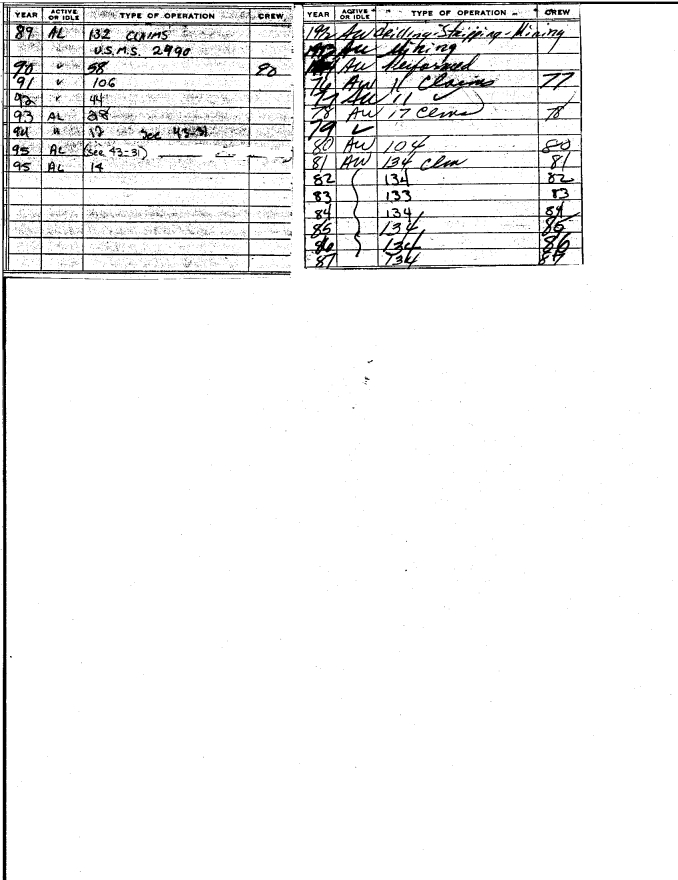 YEAR ACTIVE OR IDLE TYPE OF OPERATION CREW
89 AL 132 CLAIMS
U.S.M.S. 2990
90 " 58 90
91 " 106
92 " 44
93 AL
94 " 12 see 43-31
95 AL (see 43-31)
95 AL 14
YEAR ACTIVE OR IDLE TYPE OF OPERATION CREW
AW Drilling-Stripping-Mining
AW Mining
AW Performed
76 AW 11 Claims 77
77 AW 11 ✓
78 AW 17 Clms 78
79 ✓
80 AW 104 80
81 AW 134 Clm 81
82 134 82
83 133 83
84 134 84
85 134 85
86 134 86
87 134 87